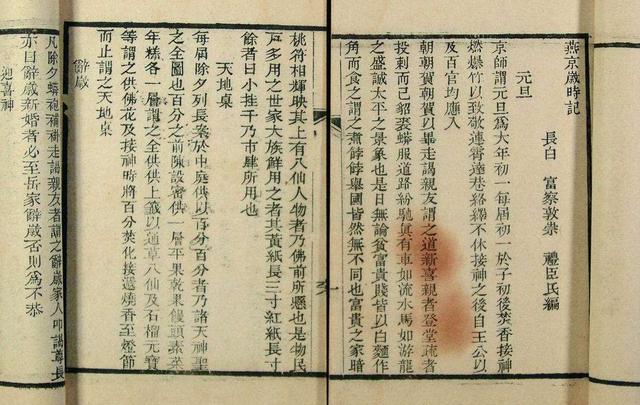 燕京歲時記
長白　富察敦崇　禮臣氏編
元旦
京師謂元旦爲大年初一每屆初一於子初後焚香接神
燃爆竹以致敬連霄達巷絡繹不休接神之後自王公以
及百官均應入
朝朝賀朝賀以畢走謁親友謂之道新喜親者登堂疏者
投刺而已貂裘蟒服道路紛馳真有車如流水馬如游龍
之盛誠太平之景象也是日無論貧富貴賤皆以白麵作
角而食之謂之煮餑餑舉國皆然無不同也富貴之家暗
桃符相輝映其上有八仙人物者乃佛前所懸也是物民
戸多用之世家大族鮮用之者其黃紙長三寸紅紙長寸
餘者曰小挂千乃市肆所用也
天地桌
每屆除夕列長案於中庭供以百分百分者乃諸天神聖
之全圖也百分之前陳設蜜供一層平果乾果饅頭素菜
年糕各一層謂之全供供上籤以通草八仙及石榴元寶
等謂之供佛花及接神時將百分焚化接遞燒香至燈節
而止謂之天地桌
辭歲
凡除夕蟒袍補褂走謁親友者謂之辭歲家人叩謁尊長
亦曰辭歲新婚者必至岳家辭歲否則爲不恭
迎喜神